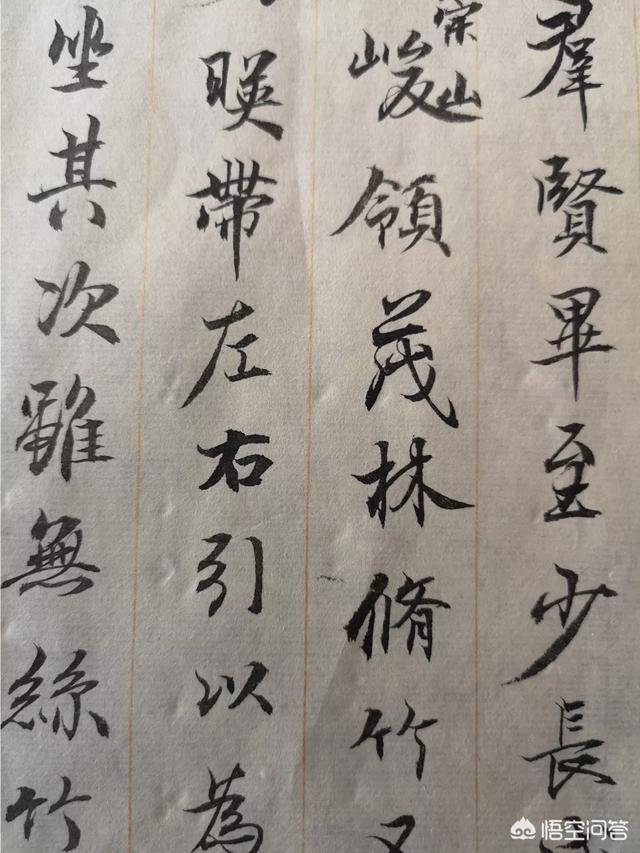 羣賢畢至少長
崇山峻領茂林脩竹又
暎帶左右引以為
坐其次雖無絲竹
悟空问答